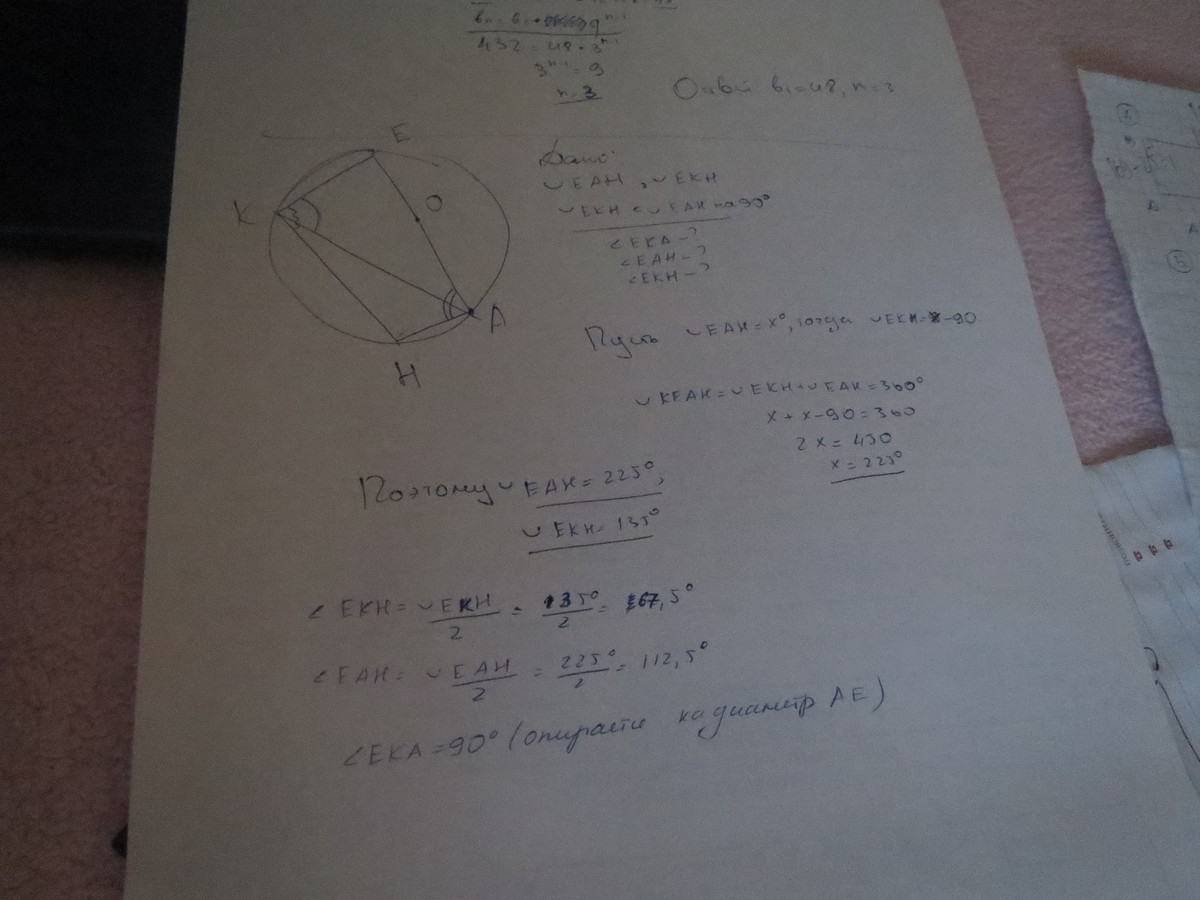 432 = 48 · 3ⁿ⁻¹
3ⁿ⁻¹ = 9
n = 3
Ответ b₁=48, n=3
E
K
O
A
H
Дано:
◡EAH, ◡EKH
◡EKH < ◡EAH на 90°
∠EKA - ?
∠EAH - ?
∠EKH - ?
Пусть ◡EAH = x°, тогда ◡EKH = x-90
◡KEAH = ◡EKH + ◡EAH = 360°
x + x - 90 = 360
2x = 450
x = 225°
Поэтому ◡EAH = 225°,
◡EKH = 135°
∠EKH = ◡EKH/2 = 135°/2 = 67,5°
∠EAH = ◡EAH/2 = 225°/2 = 112,5°
∠EKA = 90° (опирается на диаметр AE)